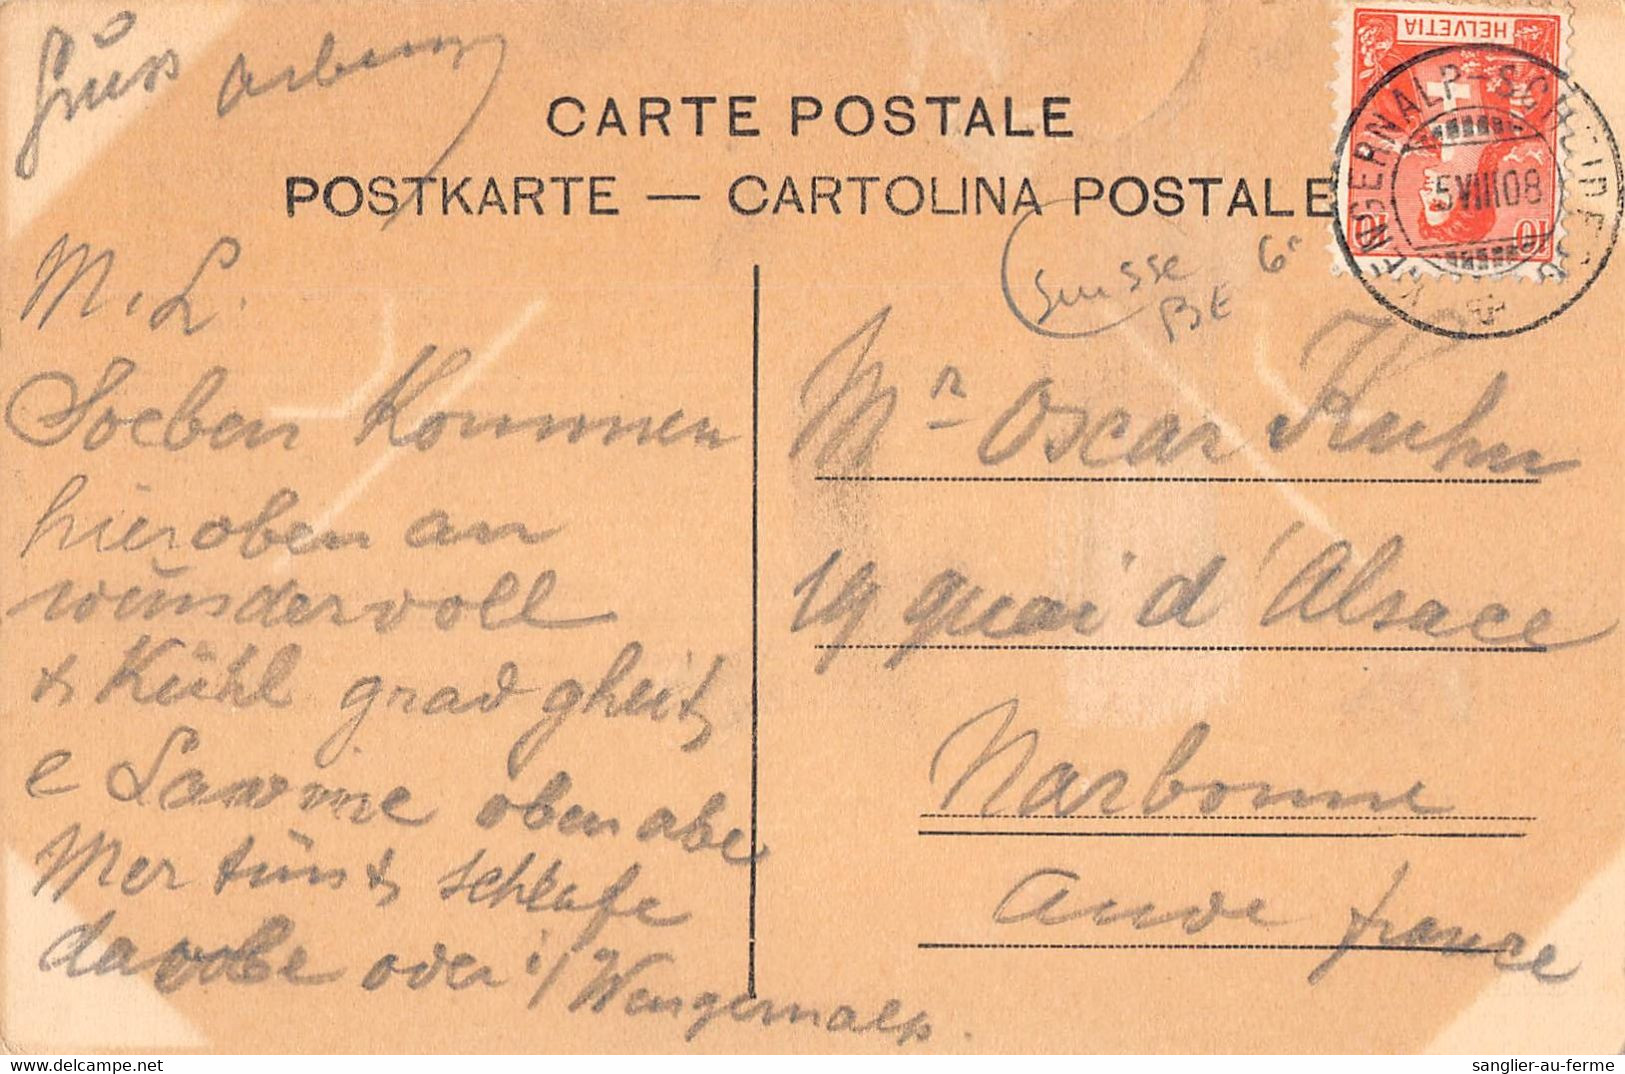 Gruss
CARTE POSTALE
POSTKARTE — CARTOLINA POSTALE
HELVETIA
10 10
WENGERNALP-SCHEIDEGG
5 VIII 08
Suisse
BE
6€
M. L.
Soeben kommen
hieroben an
wundervoll
& Kühl grad gheit
e Lawine oben abe
Mer tüns & schlafe
da obe oder i/ Wengernalp.
Mr Oscar Kuhn
19 quai d'Alsace
Narbonne
Aude france
sanglier-au-ferme